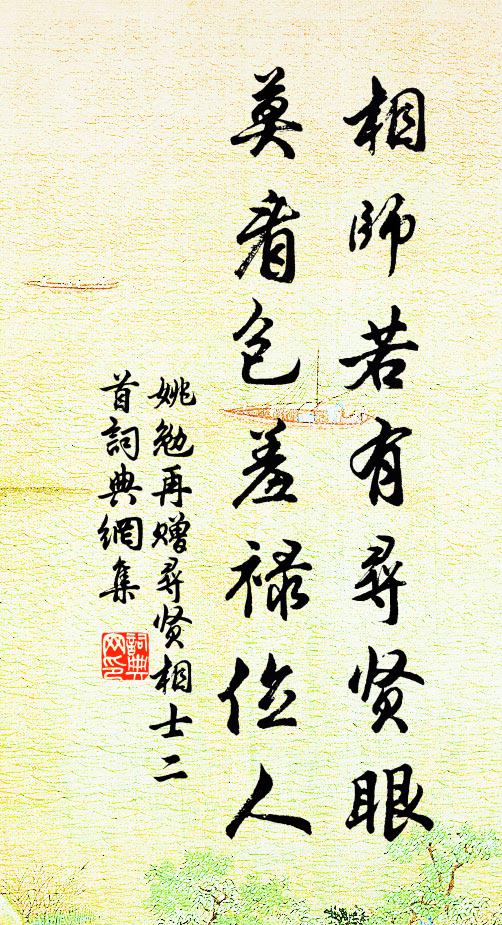 相師若有尋贤眼
莫看包羞禄位人
姚勉再赠尋贤相士二
首詞典網集
詞典網印